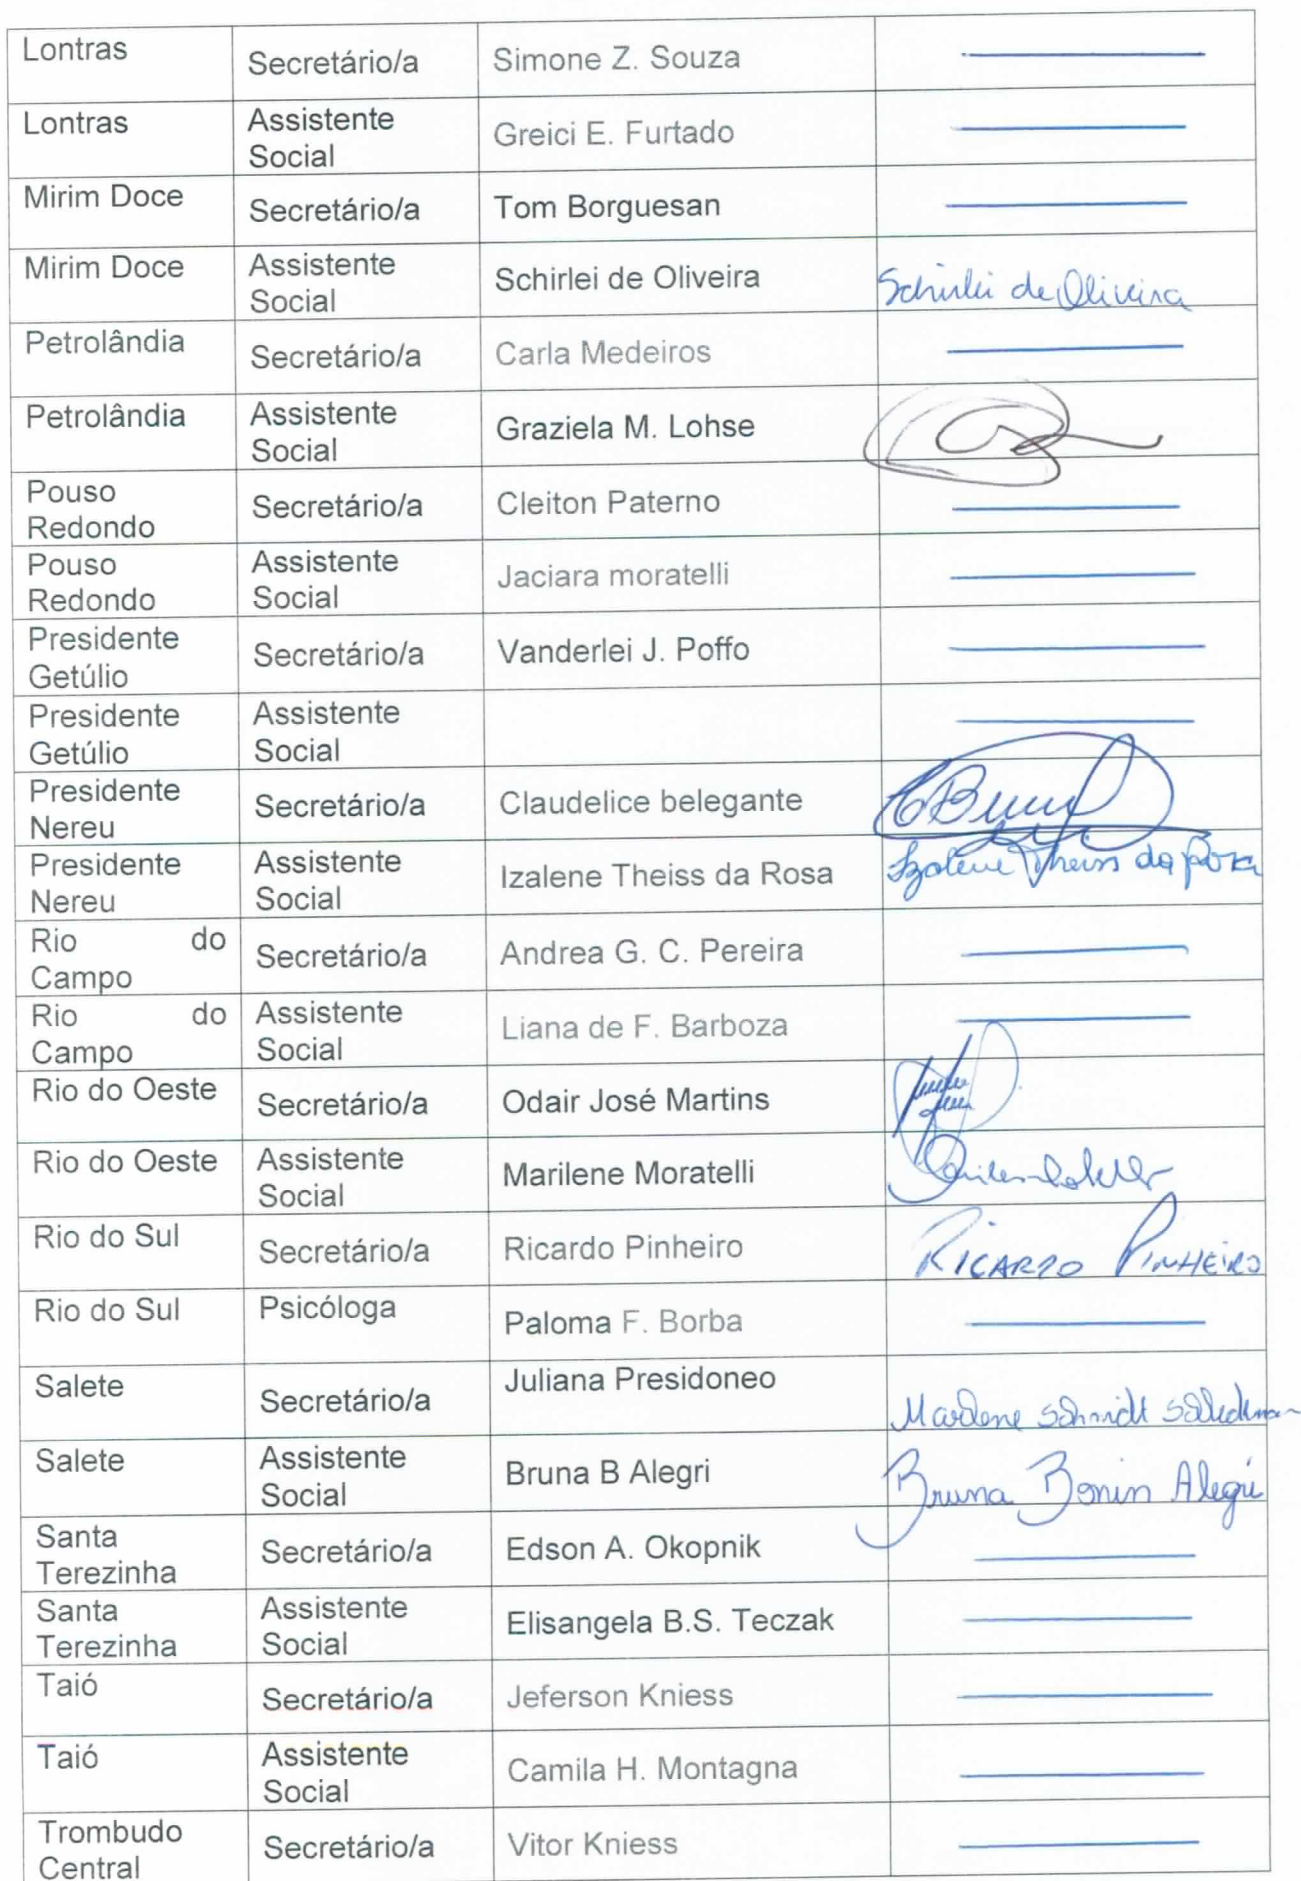 Lontras
Secretário/a
Simone Z. Souza
Lontras
Assistente
Social
Greici E. Furtado
Mirim Doce
Secretário/a
Tom Borguesan
Mirim Doce
Assistente
Social
Schirlei de Oliveira
Schirlei de Oliveira
Petrolândia
Secretário/a
Carla Medeiros
Petrolândia
Assistente
Social
Graziela M. Lohse
Pouso
Redondo
Secretário/a
Cleiton Paterno
Pouso
Redondo
Assistente
Social
Jaciara moratelli
Presidente
Getúlio
Secretário/a
Vanderlei J. Poffo
Presidente
Getúlio
Assistente
Social
Presidente
Nereu
Secretário/a
Claudelice belegante
Presidente
Nereu
Assistente
Social
Izalene Theiss da Rosa
Izalene Theiss da Rosa
Rio do
Campo
Secretário/a
Andrea G. C. Pereira
Rio do
Campo
Assistente
Social
Liana de F. Barboza
Rio do Oeste
Secretário/a
Odair José Martins
Rio do Oeste
Assistente
Social
Marilene Moratelli
Rio do Sul
Secretário/a
Ricardo Pinheiro
RICARDO PINHEIRO
Rio do Sul
Psicóloga
Paloma F. Borba
Salete
Secretário/a
Juliana Presidoneo
Marlene Schmidt
Salete
Assistente
Social
Bruna B Alegri
Bruna Bonin Alegri
Santa
Terezinha
Secretário/a
Edson A. Okopnik
Santa
Terezinha
Assistente
Social
Elisangela B.S. Teczak
Taió
Secretário/a
Jeferson Kniess
Taió
Assistente
Social
Camila H. Montagna
Trombudo
Central
Secretário/a
Vitor Kniess